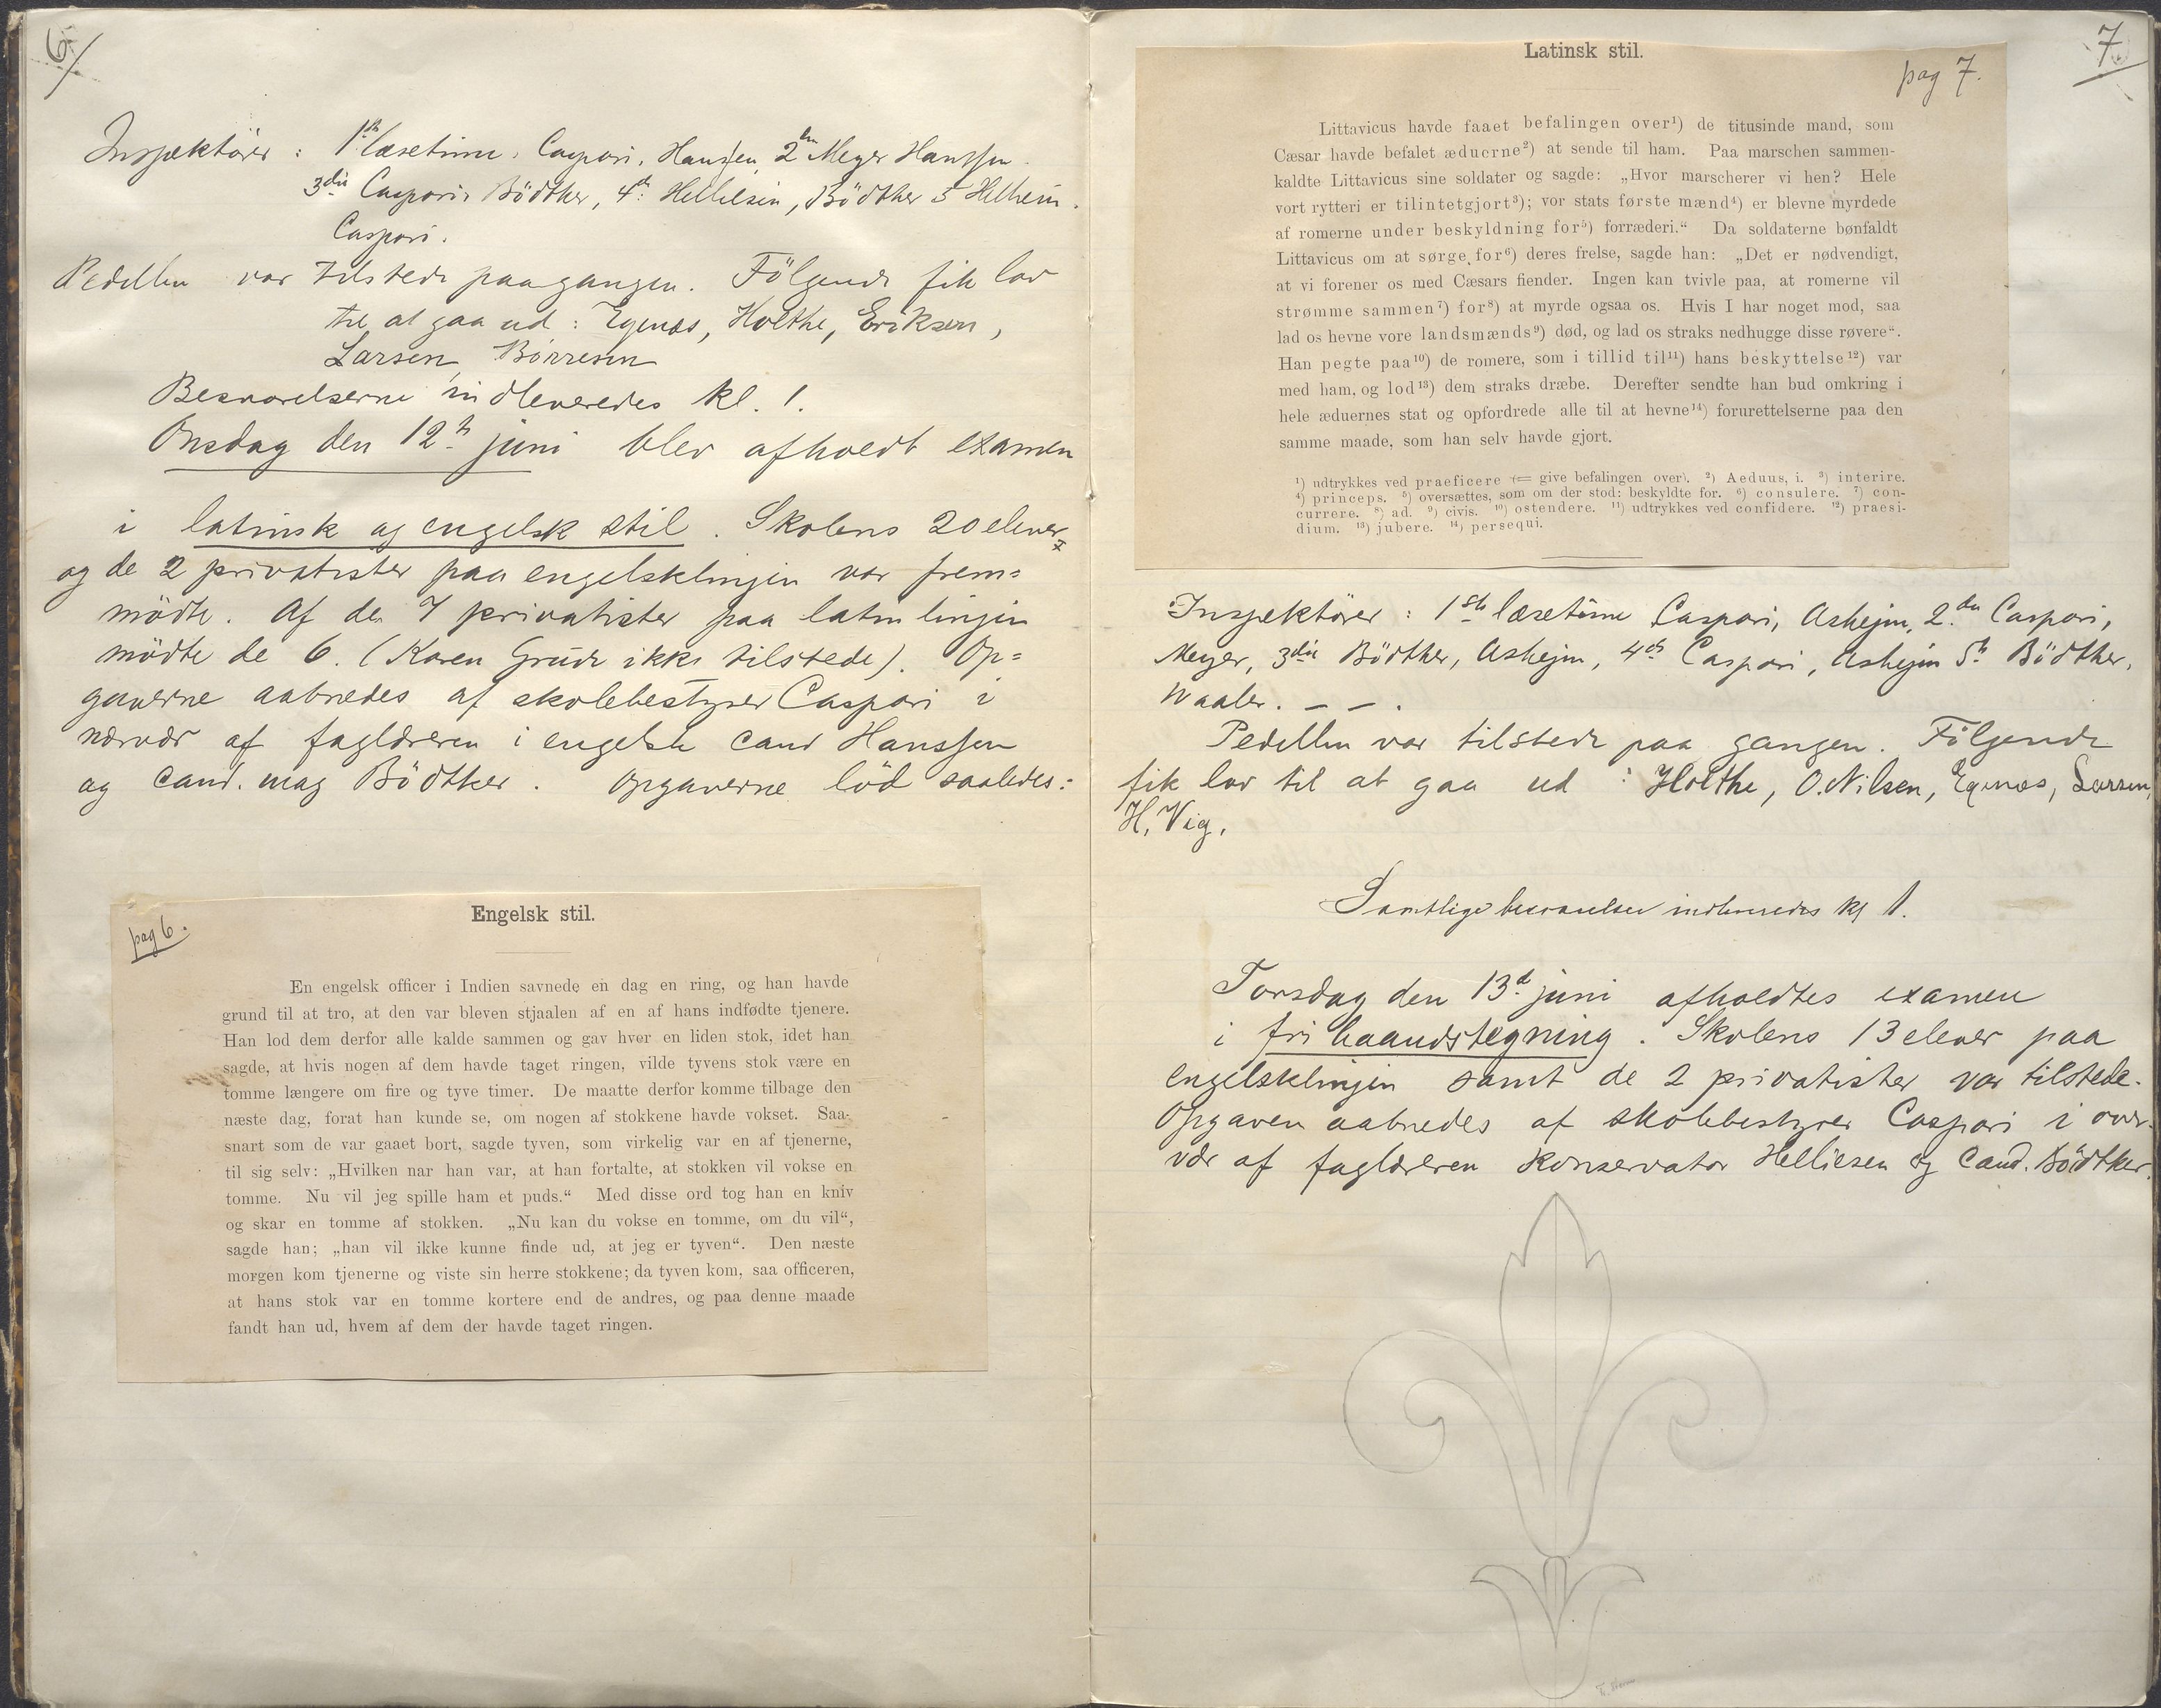 6/
Inspektörer : 1ste læsetime, Caspari, Hanssen, 2den Meyer Hanssen.
3die Caspari, Bödtker, 4de Helliesen, Bödtker 5
Caspari.
Pedellen var tilstede paa gangen. Fölgende fik lov
til at gaa ud : Egenæs, Holthe, Eriksen,
Larsen, Börresen
Besvarelserne indleveredes kl. 1.
Onsdag den 12te juni blev afholdt examen
i latinsk og engelsk stil. Skolens 20 elever
og de 2 privatister paa engelsklinjen var frem=
mödte. Af de 7 privatister paa latinlinjen
mödte de 6. (Karen Grude ikke tilstede). Op=
gaverne aabnedes af skolebestyrer Caspari i
nærvær af faglæreren i engelsk cand Hanssen
og cand. mag Bödtker. Opgaverne löd saaledes:
pag 6.
Engelsk stil.
En engelsk officer i Indien savnede en dag en ring, og han havde
grund til at tro, at den var bleven stjaalen af en af hans indfødte tjenere.
Han lod dem derfor alle kalde sammen og gav hver en liden stok, idet han
sagde, at hvis nogen af dem havde taget ringen, vilde tyvens stok være en
tomme længere om fire og tyve timer. De maatte derfor komme tilbage den
næste dag, forat han kunde se, om nogen af stokkene havde vokset. Saa-
snart som de var gaaet bort, sagde tyven, som virkelig var en af tjenerne,
til sig selv: „Hvilken nar han var, at han fortalte, at stokken vil vokse en
tomme. Nu vil jeg spille ham et puds.“ Med disse ord tog han en kniv
og skar en tomme af stokken. „Nu kan du vokse en tomme, om du vil“,
sagde han; „han vil ikke kunne finde ud, at jeg er tyven“. Den næste
morgen kom tjenerne og viste sin herre stokkene; da tyven kom, saa officeren,
at hans stok var en tomme kortere end de andres, og paa denne maade
fandt han ud, hvem af dem der havde taget ringen.
7
Latinsk stil.
pag 7.
Littavicus havde faaet befalingen over¹) de titusinde mand, som
Cæsar havde befalet æduerne²) at sende til ham. Paa marschen sammen-
kaldte Littavicus sine soldater og sagde: „Hvor marscherer vi hen? Hele
vort rytteri er tilintetgjort³); vor stats første mænd⁴) er blevne myrdede
af romerne under beskyldning for⁵) forræderi.“ Da soldaterne bønfaldt
Littavicus om at sørge for⁶) deres frelse, sagde han: „Det er nødvendigt,
at vi forener os med Cæsars fiender. Ingen kan tvivle paa, at romerne vil
strømme sammen⁷) for⁸) at myrde ogsaa os. Hvis I har noget mod, saa
lad os hevne vore landsmænds⁹) død, og lad os straks nedhugge disse røvere“.
Han pegte paa¹⁰) de romere, som i tillid til¹¹) hans beskyttelse¹²) var
med ham, og lod¹³) dem straks dræbe. Derefter sendte han bud omkring i
hele æduernes stat og opfordrede alle til at hevne¹⁴) forurettelserne paa den
samme maade, som han selv havde gjort.
¹) udtrykkes ved praeficere (= give befalingen over). ²) Aeduus, i. ³) interire.
⁴) princeps. ⁵) oversættes, som om der stod: beskyldte for. ⁶) consulere. ⁷) con-
currere. ⁸) ad. ⁹) civis. ¹⁰) ostendere. ¹¹) udtrykkes ved confidere. ¹²) praesi-
dium. ¹³) jubere. ¹⁴) persequi.
Inspektörer : 1ste læsetime Caspari, Askejm, 2.den Caspari,
Meyer, 3die Bödtker, Askejm, 4de Caspari, Askejm 5te Bödtker,
Waaler. – – .
Pedellen var tilstede paa gangen. Fölgende
fik lov til at gaa ud : Holthe, O. Nilsen, Egenæs, Larsen,
H. Vig.
Samtlige besvarelser indleveredes kl 1.
Torsdag den 13de juni afholdtes examen
i frihaandstegning. Skolens 13 elever paa
engelsklinjen samt de 2 privatister var tilstede.
Opgaven aabnedes af skolebestyrer Caspari i over-
vær af faglæreren Konservator Helliesen og Cand. Bödtker.